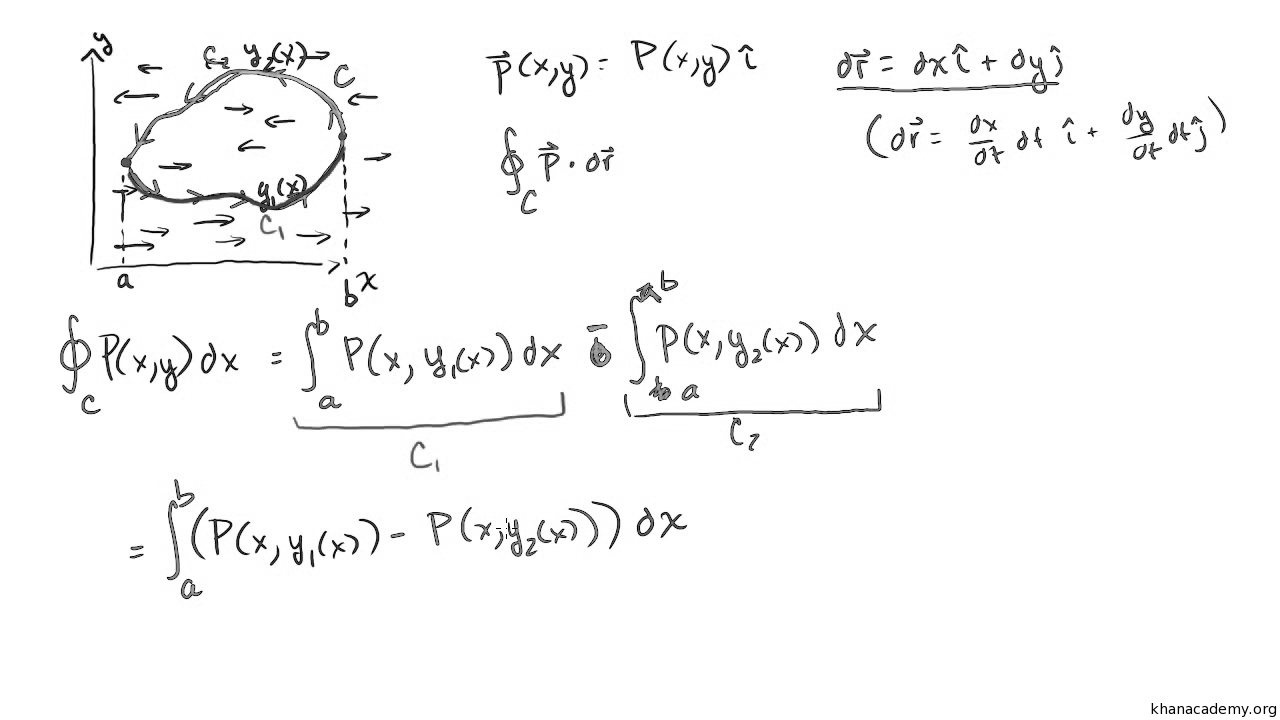 y
C₂ y₂(x)
C
y₁(x)
C₁
a
b
x
P⃗(x,y) = P(x,y) î
∮_C P⃗ · dr⃗
dr⃗ = dx î + dy ĵ
(dr⃗ = dx/dt dt î + dy/dt dt ĵ)
∮_C P(x,y) dx = ∫_a^b P(x, y₁(x)) dx − ∫_a^b P(x, y₂(x)) dx
C₁
C₂
= ∫_a^b (P(x, y₁(x)) - P(x, y₂(x))) dx
khanacademy.org